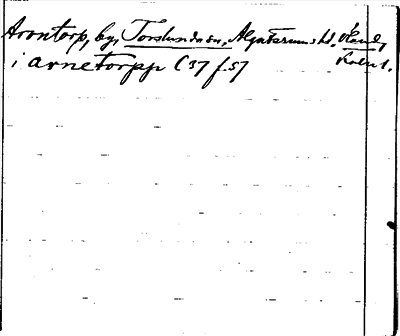 Arontorp, by, Torslunda sn, Algutsrums hd. Öland,
Kalm. l.
i arnetorpp C 37 f. 57